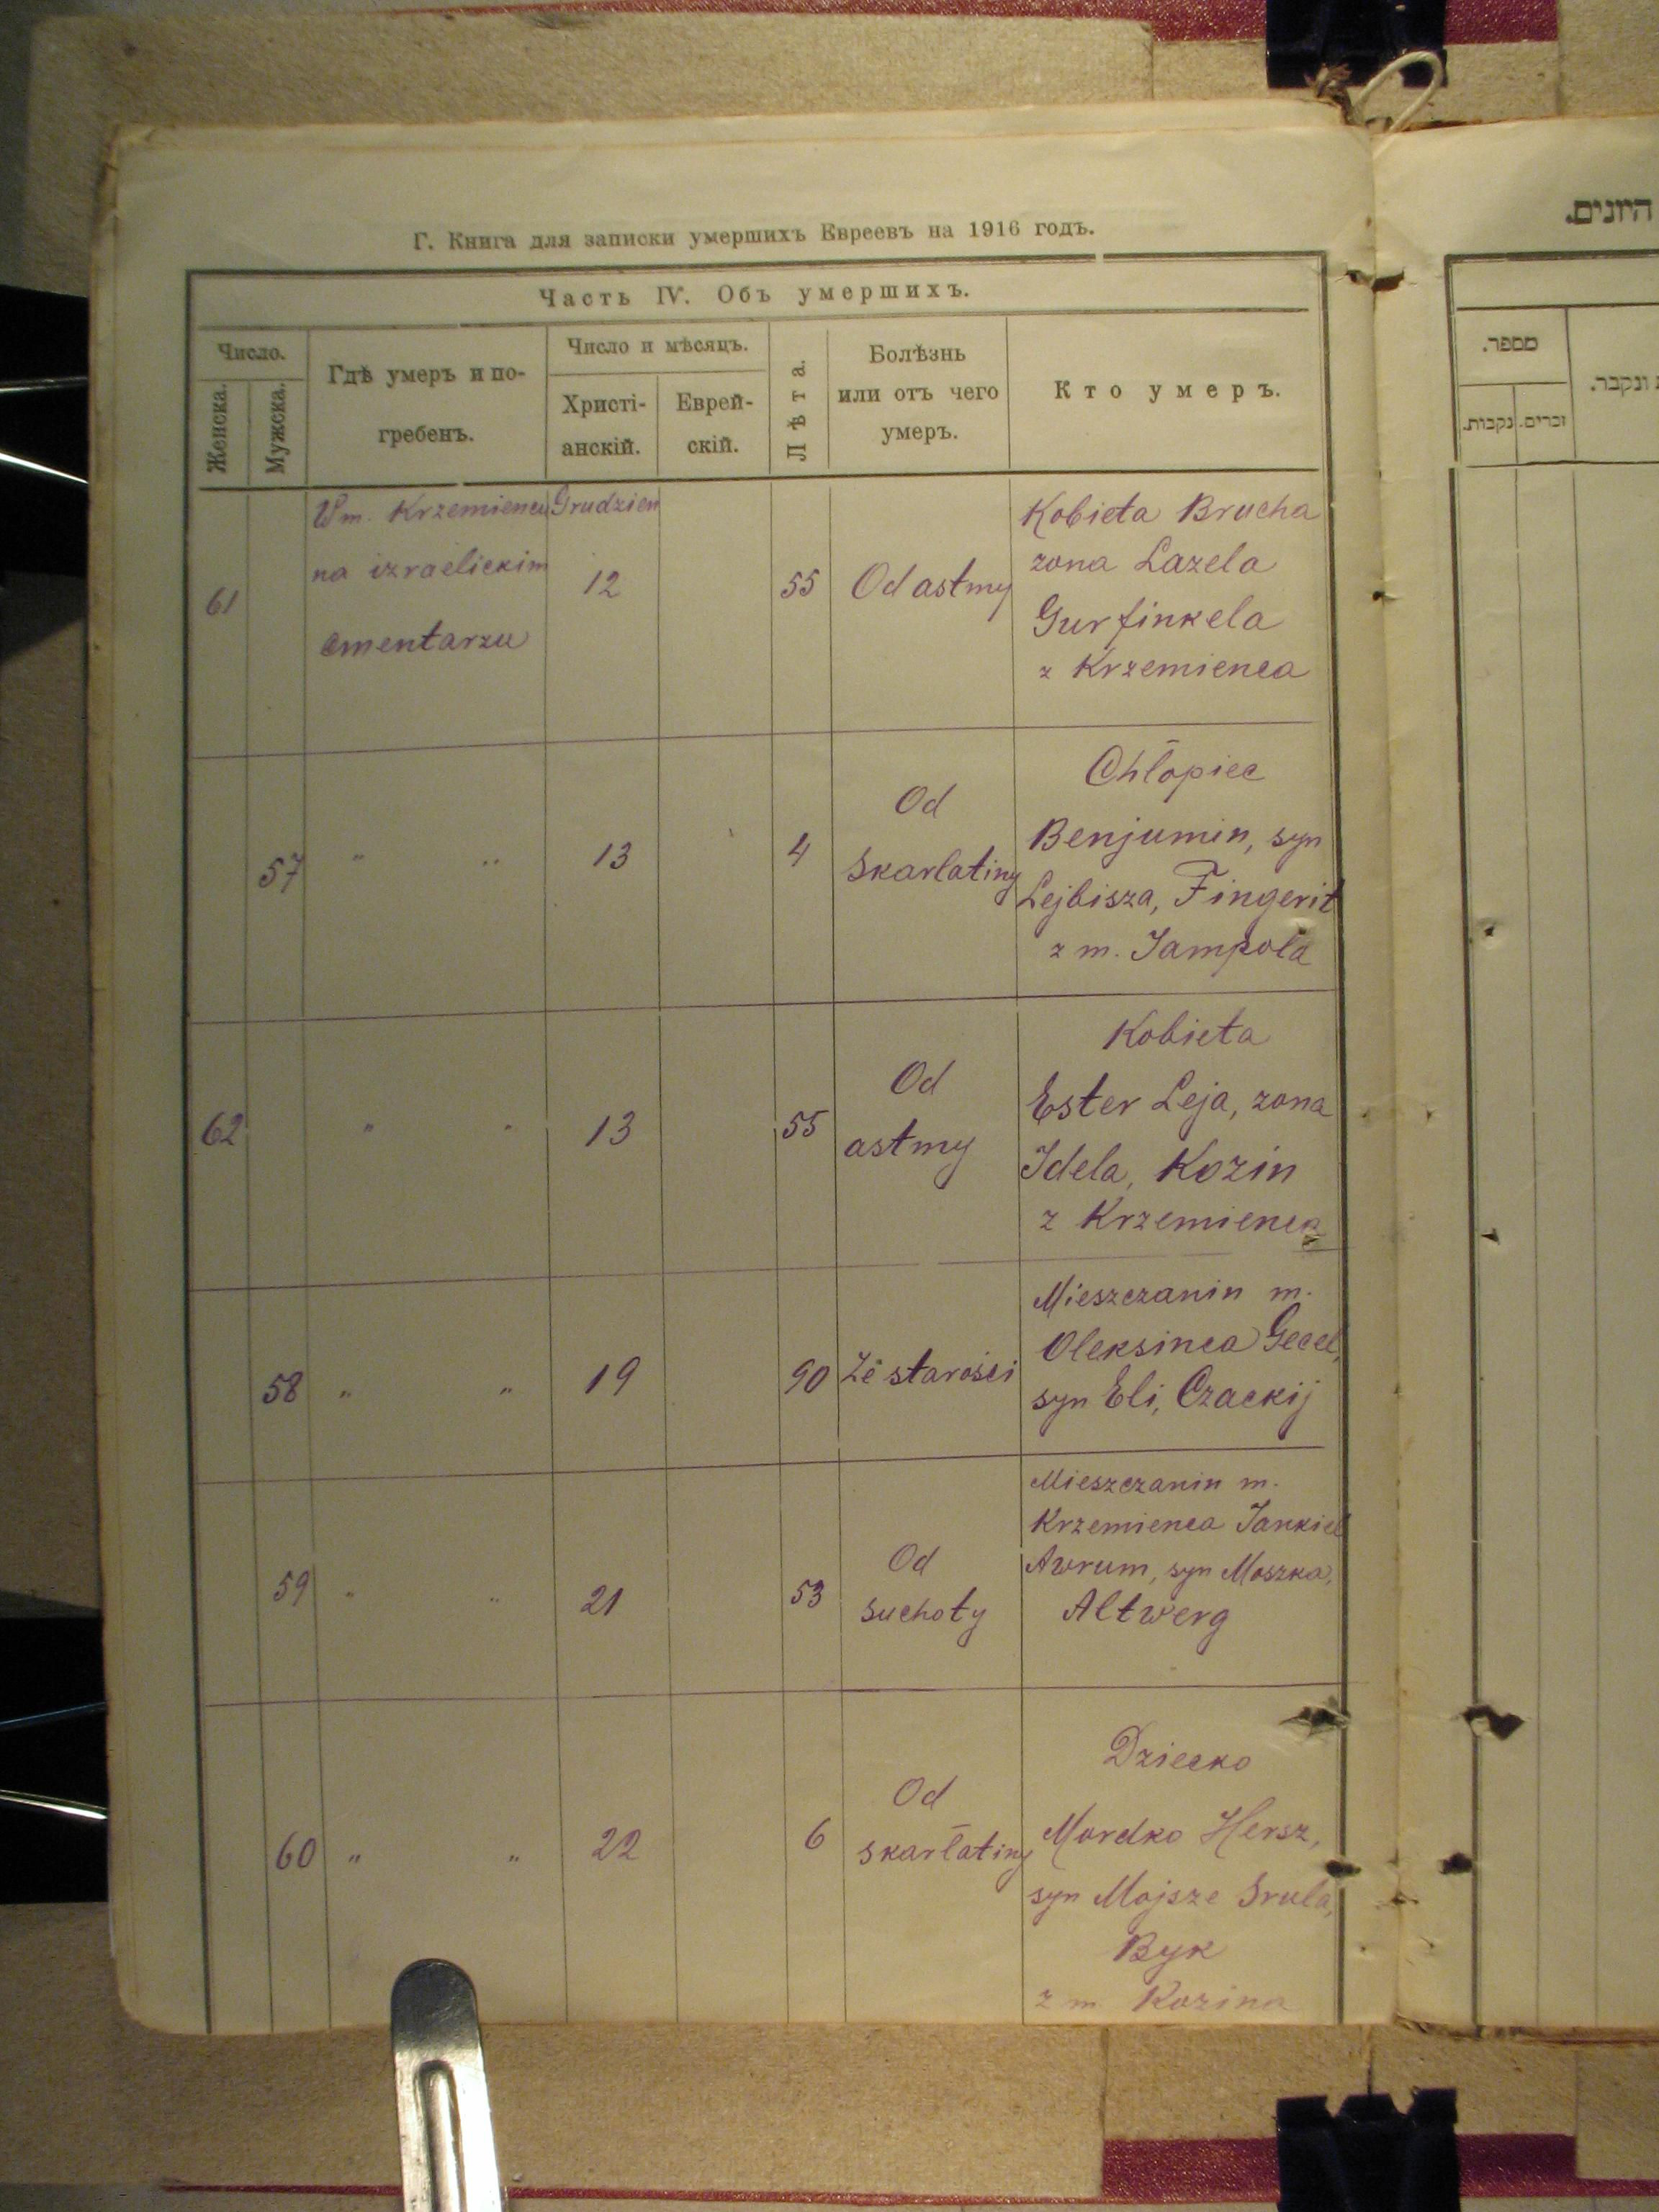 Г. Книга для записки умершихъ Евреевъ на 1916 годъ.
Часть IV. Объ умершихъ.
Число.
Женска.
Мужска.
Гдѣ умеръ и по-
гребенъ.
Число и мѣсяцъ.
Христі-
анскій.
Еврей-
скій.
Лѣта.
Болѣзнь
или отъ чего
умеръ.
Кто умеръ.
61
W m. Krzemieńcu
na izraelickim
cmentarzu
Grudzien
12
55
Od astmy
Kobieta Brucha
zona Lazela
Gurfinkela
z Krzemienca
57
" "
13
4
Od
skarlatiny
Chłopiec
Benjumin, syn
Lejbisza, Fingerit
z m. Jampola
62
" "
13
55
Od
astmy
Kobieta
Ester Leja, zona
Idela, Kozin
z Krzemienca
58
" "
19
90
Ze starości
Mieszczanin m.
Oleksinca Gecel,
syn Eli, Czackij
59
" "
21
53
Od
suchoty
Mieszczanin m.
Krzemienca Jankiel
Awrum, syn Moszka,
Altwerg
60
" "
22
6
Od
skarłatiny
Dziecko
Mordko Hersz,
syn Mojsze Srula,
Byk
z m Kozina
היונים.
מספר.
זכרים.
נקבות.
ונקבר.